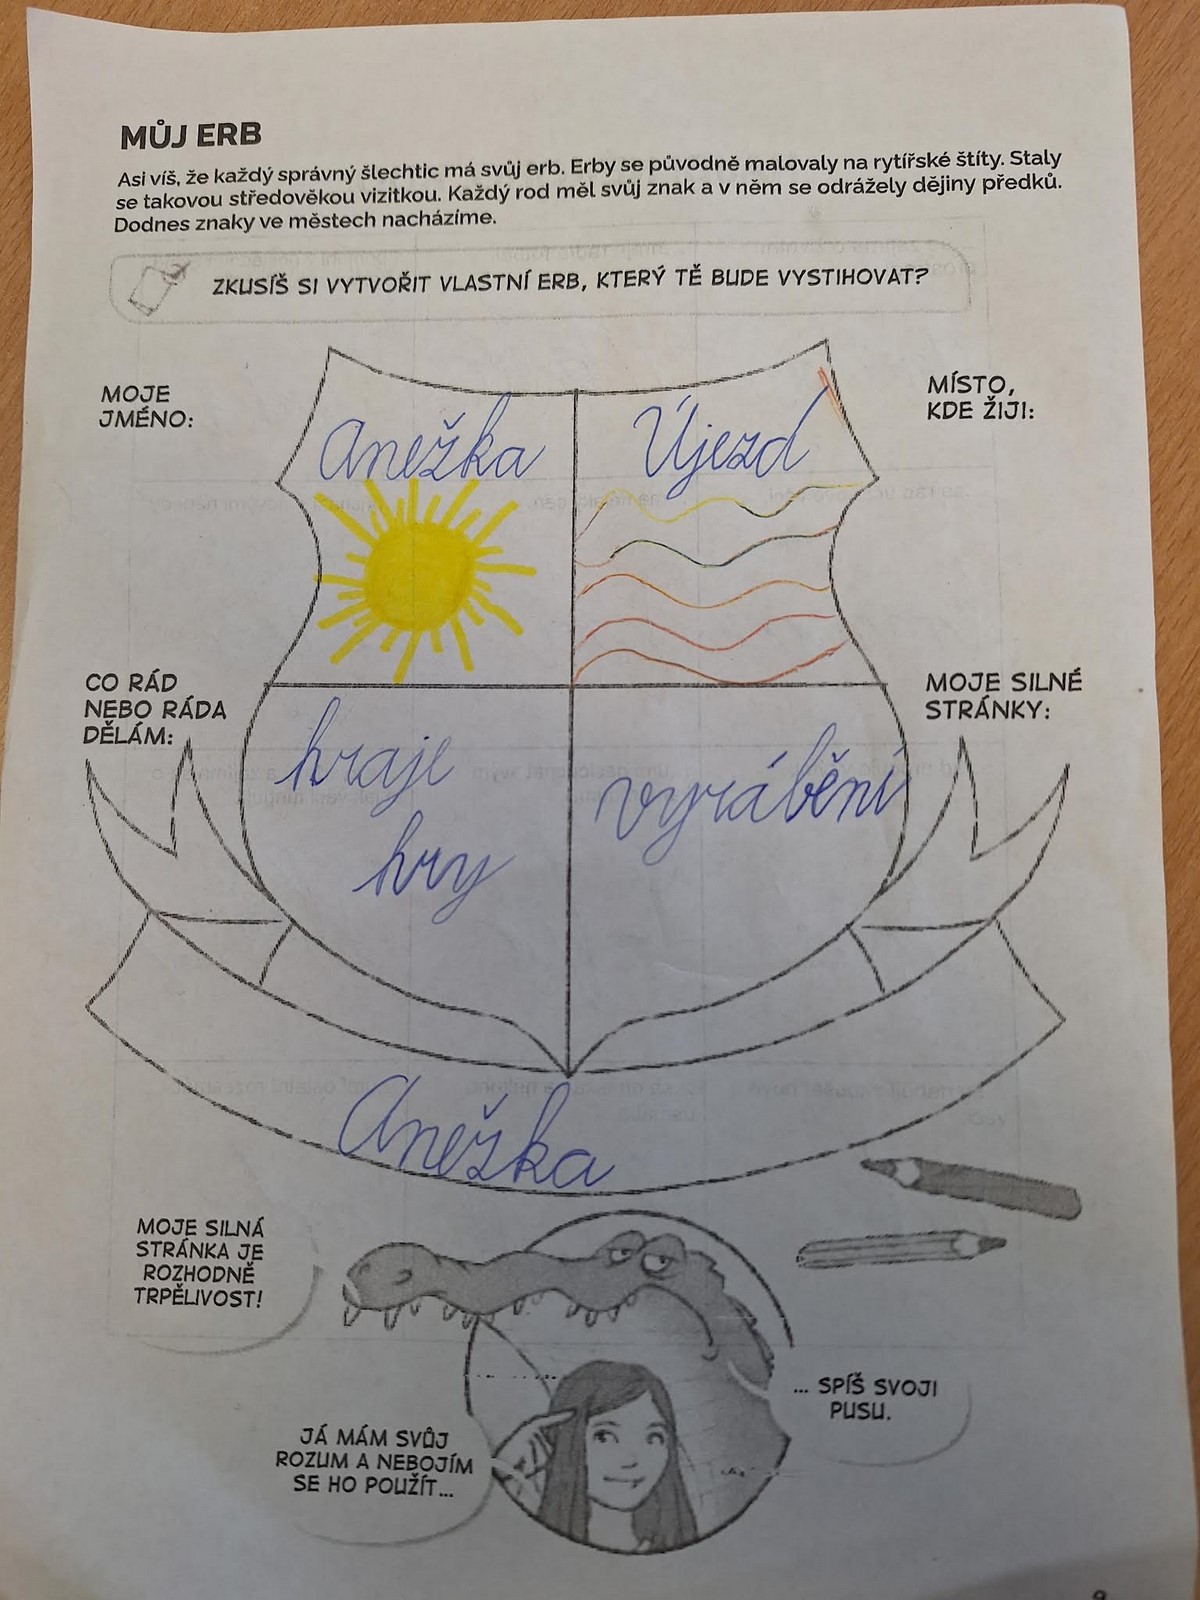 MŮJ ERB
Asi víš, že každý správný šlechtic má svůj erb. Erby se původně malovaly na rytířské štíty. Staly
se takovou středověkou vizitkou. Každý rod měl svůj znak a v něm se odrážely dějiny předků.
Dodnes znaky ve městech nacházíme.
ZKUSÍŠ SI VYTVOŘIT VLASTNÍ ERB, KTERÝ TĚ BUDE VYSTIHOVAT?
MOJE
JMÉNO:
Anežka
Újezd
MÍSTO,
KDE ŽIJI:
CO RÁD
NEBO RÁDA
DĚLÁM:
hraje
hry
MOJE SILNÉ
STRÁNKY:
vyrábění
Anežka
MOJE SILNÁ
STRÁNKA JE
ROZHODNĚ
TRPĚLIVOST!
JÁ MÁM SVŮJ
ROZUM A NEBOJÍM
SE HO POUŽÍT...
... SPÍŠ SVOJI
PUSU.